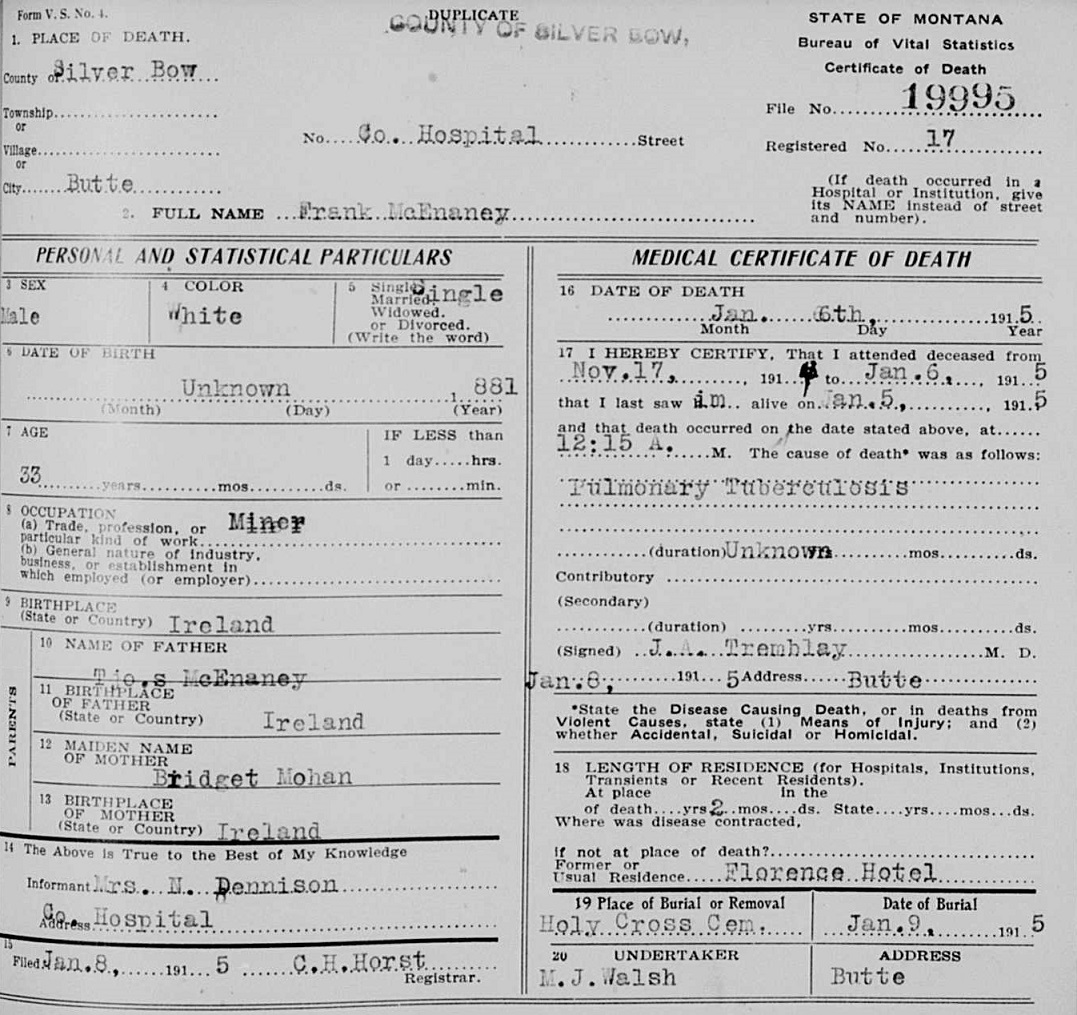 Form V. S. No. 4.
DUPLICATE
COUNTY OF SILVER BOW,
STATE OF MONTANA
Bureau of Vital Statistics
Certificate of Death
File No. 19995
Registered No. 17
(If death occurred in a
Hospital or Institution, give
its NAME instead of street
and number).
1. PLACE OF DEATH.
County of Silver Bow
Township
or
Village
or
City Butte
No. Co. Hospital Street
2. FULL NAME Frank McEnaney
PERSONAL AND STATISTICAL PARTICULARS
3 SEX
Male
4 COLOR
White
5 Single
Married
Widowed.
or Divorced.
(Write the word)
Single
6 DATE OF BIRTH
Unknown 1, 881
(Month) (Day) (Year)
7 AGE
33 years. mos. ds.
IF LESS than
1 day.....hrs.
or ........min.
8 OCCUPATION
(a) Trade, profession, or
particular kind of work Miner
(b) General nature of industry,
business, or establishment in
which employed (or employer)
9 BIRTHPLACE
(State or Country) Ireland
PARENTS
10 NAME OF FATHER
McEnaney
11 BIRTHPLACE
OF FATHER
(State or Country) Ireland
12 MAIDEN NAME
OF MOTHER
Bridget Mohan
13 BIRTHPLACE
OF MOTHER
(State or Country) Ireland
14 The Above is True to the Best of My Knowledge
Informant Mrs. N. Dennison
Address Co. Hospital
15
Filed Jan. 8, 191 5 C.H.Horst
Registrar.
MEDICAL CERTIFICATE OF DEATH
16 DATE OF DEATH
Jan. 6th, 191 5
Month Day Year
17 I HEREBY CERTIFY, That I attended deceased from
Nov.17, , 191 4 to Jan.6., , 191 5
that I last saw im alive on Jan.5, , 191 5
and that death occurred on the date stated above, at
12:15 A. M. The cause of death* was as follows:
Pulmonary Tuberculosis
(duration) Unknown mos. ds.
Contributory
(Secondary)
(duration) yrs. mos. ds.
(Signed) J.A. Tremblay M. D.
Jan.8, 191 5 Address Butte
*State the Disease Causing Death, or in deaths from
Violent Causes, state (1) Means of Injury; and (2)
whether Accidental, Suicidal or Homicidal.
18 LENGTH OF RESIDENCE (for Hospitals, Institutions,
Transients or Recent Residents).
At place In the
of death....yrs 2 mos....ds. State....yrs....mos...ds.
Where was disease contracted,
if not at place of death?
Former or
Usual Residence Florence Hotel
19 Place of Burial or Removal
Holy Cross Cem.
Date of Burial
Jan.9., 191 5
20 UNDERTAKER
M.J.Walsh
ADDRESS
Butte